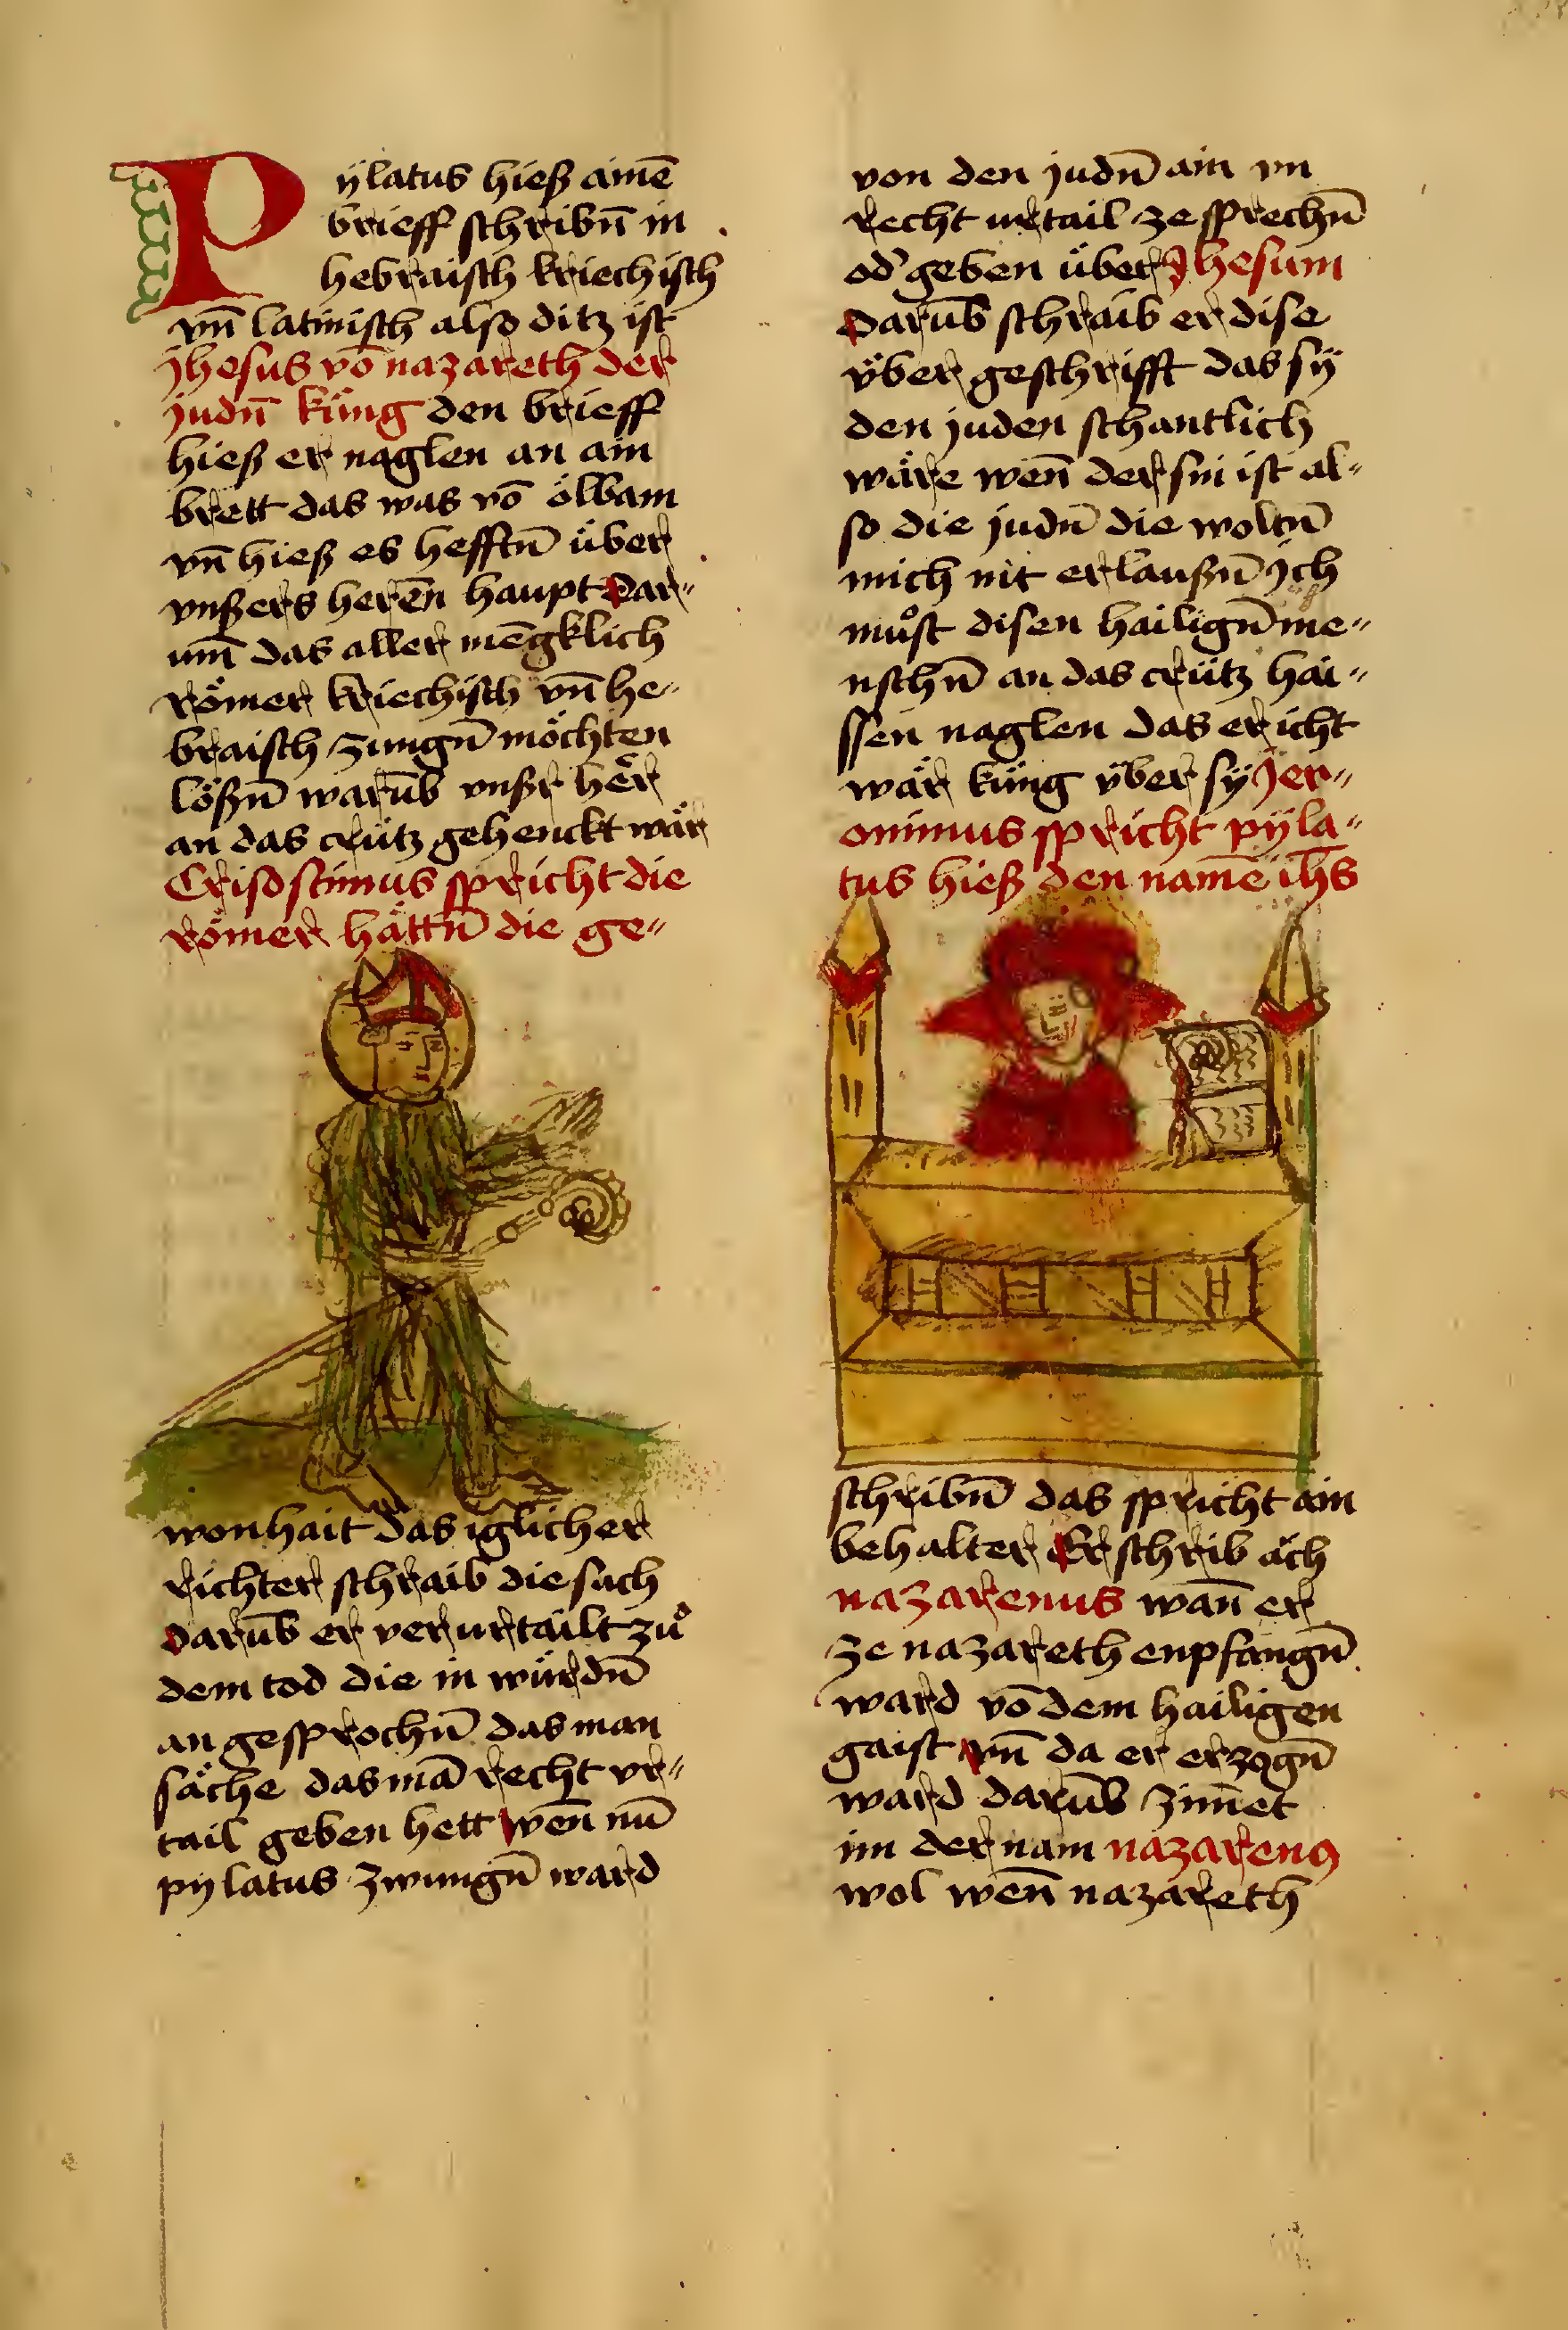 Pÿlatus hieß ainē
brieff schribn̄ in
hebraisch kriechisch
vn̄ latinisch also ditz ist
jhesus vō nazareth der
judn̄ küng den brieff
hieß er naglen an ain
brett das was vō ölbam
vn̄ hieß es hefftn̄ über
vnßers herēn haupt Dar〃
um̄ das aller mēgklich
Römer kriechisch vn̄ he〃
braisch zungn̄ möchten
lößn̄ warūb vnßr hër
an das crütz gehenckt wär
Crisostimus spricht die
Römer hättn̄ die ge〃
wonhait das iglicher
richter schraib die sach
darūb er verurtailt zuͦ
dem tod die in würdn̄
an gesprochn̄ das man
säche das mā recht vr〃
tail geben hett wen̄ nū
pylatus zwungn̄ ward
von den judn̄ ain vn
recht urtail ze sprechn̄
od' geben über Jhesum
Darūb schraib er dise
über geschrifft das sÿ
den juden schantlich
wäre wen̄ der sin ist al〃
so die judn̄ die woltn̄
mich nit erlaußn̄ Ich
muͦst disen hailign̄ me〃
nschn̄ an das crütz hai〃
ssen naglen das er icht
wär küng über sÿ Jer〃
onimus spricht pÿla〃
tus hieß den namē ih̄s
schribn̄ das spricht ain
behalter Er schrib äch
nazarenus wan̄ er
ze nazareth enpfangn̄
ward vō dem hailigen
gaist vn̄ da er erzogn̄
ward darūb zim̄et
im der nam nazarenꝯ
wol wen̄ nazareth